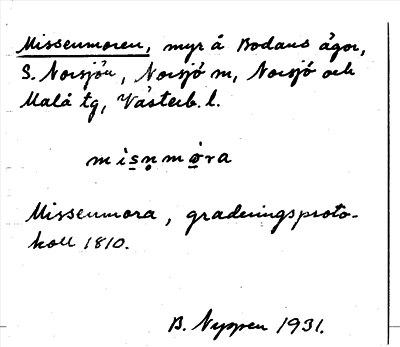 Missenmoren, myr å Bodans ägor,
S. Norsjön, Norsjö sn, Norsjö och
Malå tg, Västerb. l.
misn̥móra
Missenmora, graderingsproto-
koll 1810.
B. Nyppen 1931.